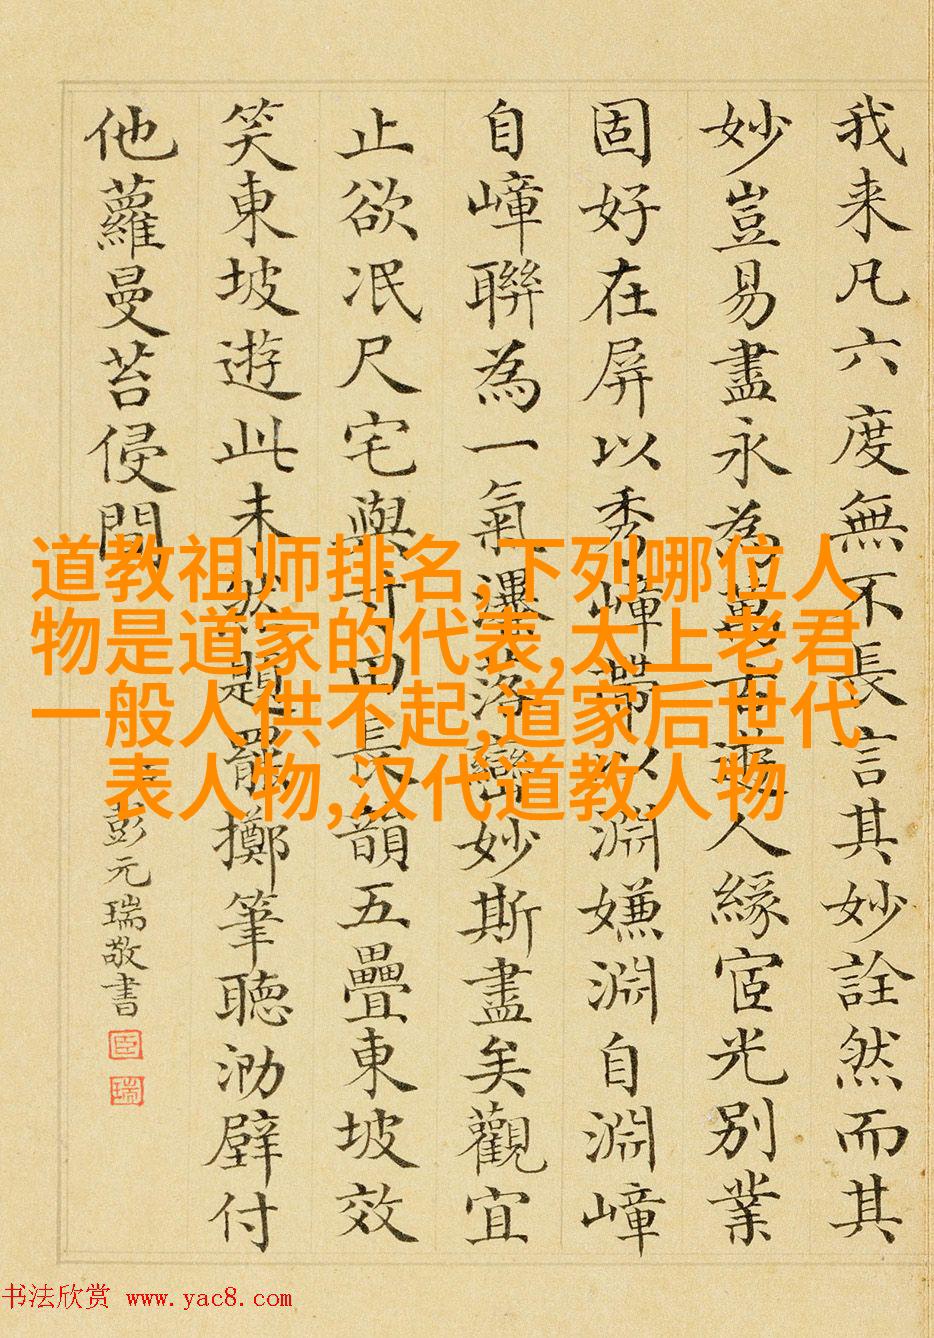 我来凡六度無不長言其妙詮然而其
妙豈易盡永為萬古人緣宦光別業
固好在屏以秀嶂帶以淵嫌淵自淵嶂
自嶂聯為一氣瀑落巒妙斯盡矣觀宜
止欲泯尺宅與寸田長韻五疊東坡效
笑東坡遊此未然題罷擲筆聽泐壁付
他蘿曼苔侵間
彭元瑞敬書
臣
瑞
道教祖师排名,下列哪位人
物是道家的代表,太上老君
一般人供不起,道家后世代
表人物,汉代道教人物
书法欣赏 www.yac8.com